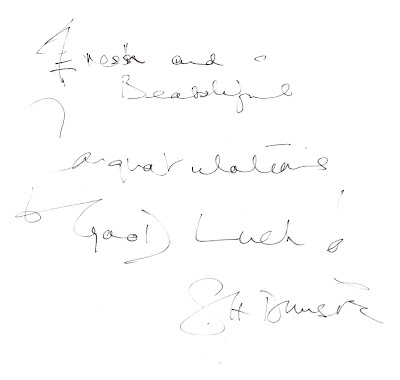 Fresh and
Beautiful
Congratulations
& Good Luck!